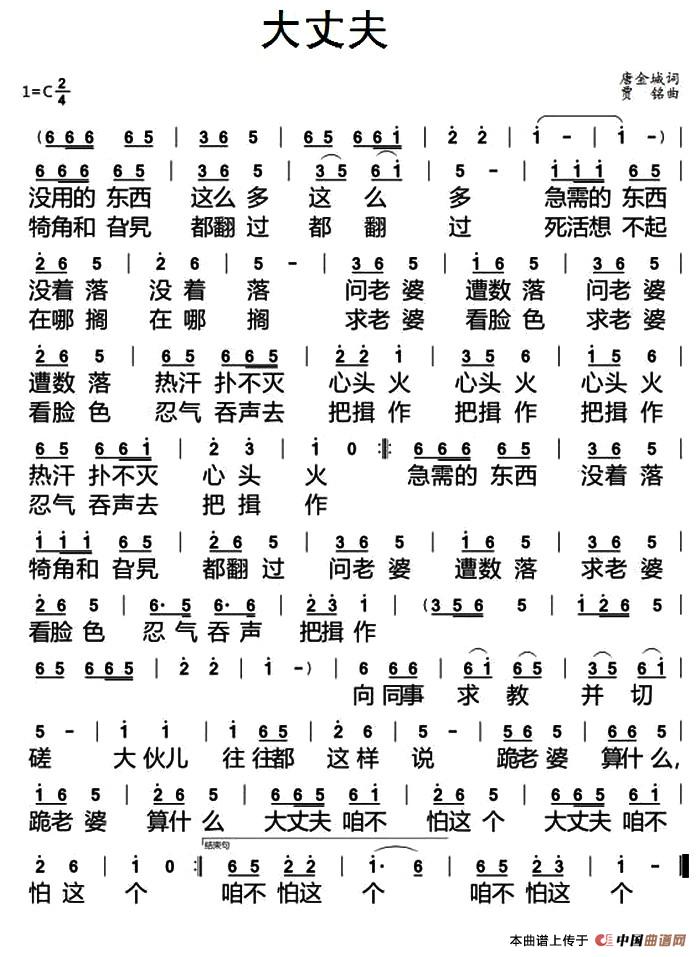 大丈夫
1=C 2/4
唐金城词
贾 铭曲
( 6 6 6 6 5 | 3 6 5 | 1 6 5 6 6 1 | 2 2 | 1 - | 1 - )
6 6 6 6 5 | 3 6 5 | 3 5 6 1 | 5 - | 1 1 1 6 5 |
没用的 东西 这么多 这 么 多 急需的 东西
犄角和 旮旯 都翻过 都 翻 过 死活想 不起
2 6 5 | 2 6 5 | 5 - | 3 6 5 | 3 6 5 | 3 6 5 |
没着落 没着落 问老婆 遭数落 问老婆
在哪搁 在哪搁 求老婆 看脸色 求老婆
2 6 5 | 6 5 6 6 5 | 2 2 1 | 3 5 6 | 1 5 6 |
遭数落 热汗 扑不灭 心头火 心头火 心头火
看脸色 忍气 吞声去 把揖作 把揖作 把揖作
6 5 6 6 1 | 2 3 | 1 0 :‖: 6 6 6 6 5 | 3 6 5 |
热汗 扑不灭 心 头 火 急需的 东西 没着落
忍气 吞声去 把 揖 作
1 1 1 6 5 | 3 6 5 | 3 6 5 | 3 6 5 | 3 6 5 |
犄角和 旮旯 都翻过 问老婆 遭数落 求老婆
2 6 5 | 6· 5 6· 6 | 2 3 1 | ( 3 5 6 5 | 1 2 6 5 |
看脸色 忍气吞声 把揖作
6 5 6 6 5 | 2 2 | 1 - ) | 6 6 6 | 6 1 5 | 3 5 6 1 |
向 同事 求 教 并 切
5 - | 1 1 1 | 1 6 5 | 2 6 5 | 5 6 5 | 3 6 5 |
磋 大伙儿 往往都 这样说 跪老婆 算什么,
1 6 5 | 2 6 5 | 6 6 5 6 1 | 2 6 5 | 6 6 5 6 1 |
跪老婆 算什么 大丈夫 咱不 怕这个 大丈夫 咱不
结束句
2 6 | 1 0 :‖ 6 5 2 2 | 1· 6 | 6 5 2 3 | 1 - ‖
怕 这 个 咱不 怕这 个 咱不 怕这 个
本曲谱上传于 中国曲谱网